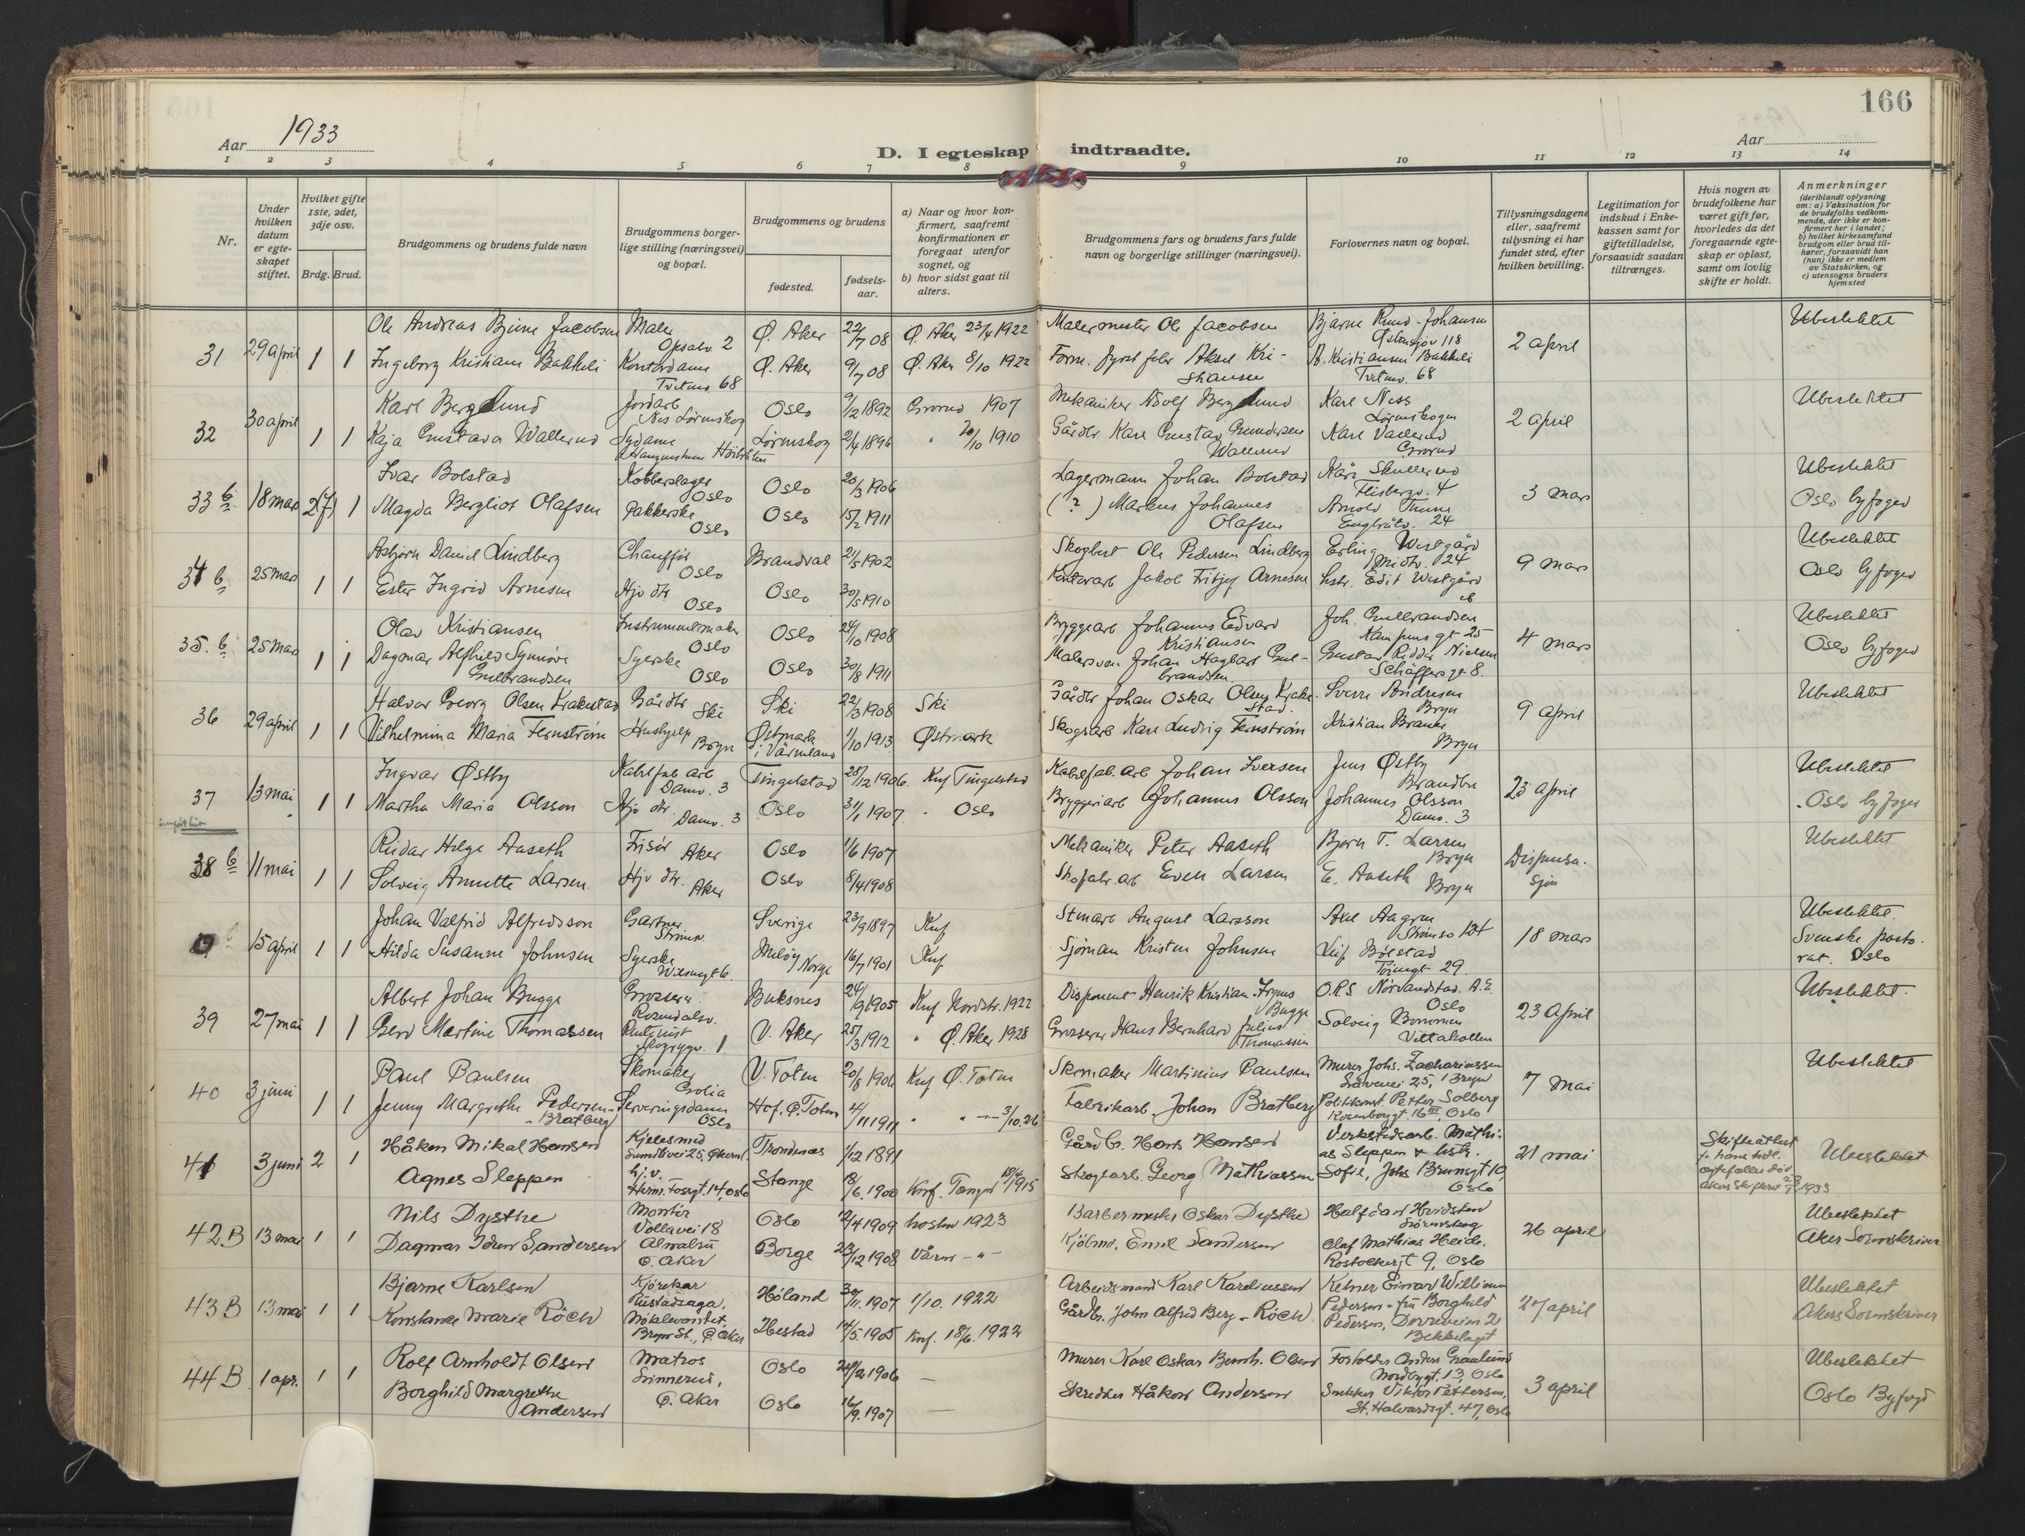 166
Aar 1933
Aar
D. I egteskap indtraadte.
1 2 3 4 5 6 7 8 9 10 11 12 13 14
Nr.
Under hvilken datum er egteskapet stiftet.
Hvilket gifte 1ste, 2det, 3dje osv.
Brdg. Brud.
Brudgommens og brudens fulde navn
Brudgommens borgerlige stilling (næringsvei) og bopæl.
Brudgommens og brudens
fødested.
fødselsaar.
a) Naar og hvor konfirmert, saafremt konfirmationen er foregaat utenfor sognet, og
b) hvor sidst gaat til alters.
Brudgommens fars og brudens fars fulde navn og borgerlige stillinger (næringsvei).
Forlovernes navn og bopæl.
Tillysningsdagene eller, saafremt tulysning ei har fundet sted, efter hvilken bevilling.
Legitimation for indskud i Enkekassen samt for giftetilladelse, forsaavidt saadan tiltrænges.
Hvis nogen av brudefolkene har været gift før, hvorledes da det foregaaende egteskap er opløst, samt om lovlig skifte er holdt.
Anmerkninger
(deriblandt oplysning om: a) Vaksination for de brudefolks vedkommende, der ikke er konfirmert her i landet;
b) hvilket kirkesamfund brudgom eller brud tilhører, forsaavidt han (hun) ikke er medlem av Statskirken, og
c) utensogns bruders hjemsted
31 29 april 1 1 Ole Andreas Bjirne Jacobsen Maler Opsalv 2 Ø. Aker 22/7 08 Ø. Aker 23/4 1922 Malermester Ole Jacobsen Bjarne Rund-Johansen Østensjøv 118 2 april Ubeslektet
Ingeborg Kristiane Bakkeli Kontordame Tvetenv. 68 Ø. Aker 9/7 08 Ø. Aker 8/10 1922 Form. fyrst Aksel Kristiansen A. Kristiansen Bakkeli Tvetenv. 68
32 30 april 1 1 Karl Berglund Jordarb Oslo 9/2 1892 Grorud 1907 Mekaniker Adolf Berglund Karl Ness Lørenskogen 2 april Ubeslektet
Kaja Gustava Wallerud Sydame Lørenskog 2/4 1896 " 20/10 1910 Gårdbr Karl Gustav Gundersen Wallerud Karl Vallerud Grorud
33 b 18 mars 2(?) 1 Ivar Bolstad Kobberslager Oslo Oslo 20/3 1906 Lagermann Johan Bolstad Kåre Skullerud Flisbergv. 4 3 mars Ubeslektet
Magda Bergliot Olafsen Pakkerske Oslo Oslo 15/2 1911 (?) Markus Johannes Olafsen Arnold Thune 24 Oslo byfoged
34 b 25 mars 1 1 Asbjørn Daniel Lindberg Chauffør Oslo Brandval 21/5 1902 Skogbest Ole Pedersen Lindberg Erling Westgård 24 9 mars Ubeslektet
Ester Ingrid Arnesen Hjv dtr Oslo Oslo 30/5 1910 Kontorarb Jakob Fritjof Arnesen hstr. Edit Westgård Oslo byfoged
35. b 25 Mars 1 1 Olav Kristiansen Instrumentmaker Oslo Oslo 24/10 1908 Bryggearb Johannes Edvard Kristiansen Joh. Gulbrandsen Kampensgt 25 4 mars Ubeslektet
Dagmar Alfhild Synnøve Gulbrandsen Syerske Oslo Oslo 30/8 1911 Malersven Johan Hagbart Gulbrandsen Gustav Ridder Nielsen Schåffersgt 8. Oslo byfoged
36 29 april 1 1 Halvar Georg Olsen Krakestad Gårdbr Ski Ski 22/3 1908 Ski Gårdbr Johan Oskar Olsen Krakestad. Sverre Andresen Bryn 9 april Ubeslektet
Vilhelmina Maria Fernstrøm Hushjelp Bryn Østmark i Värmland 1/10 1913 Østmark Skogsarb Karl Ludvig Fernstrøm Kristian Bryn
37 13 mai 1 1 Ingvar Østby Kabelfab arb Damv. 3 Tingelstad 28/12 1906. Knf Tingelstad Kabelfab. arb Johan Iversen Jens Østby Brandbu 23 april Ubeslektet
Martha Maria Olsson Hjv dtr. Damv. 3 Oslo 31/1 1907 " Oslo Bryggeriarb Johannes Olsson Johannes Olsson Damv. 3 Oslo byfoged
38 b 11 mai 1 1 Reidar Helge Aaseth Frisør Aker Oslo 1/6 1907 Mekaniker Peter Aaseth Bjørn T. Larsen Bryn Dispensasjon Ubeslektet
Solveig Annette Larsen Hjv dtr. Aker Oslo 8/4 1908 Skofabr. arb Even Larsen E. Aaseth Bryn
15 april 1 1 Johan Valfrid Alfredsson Gartner Strømsv Sverige 23/9 1897 Knf Stenarb August Larsson Axel Aagren Strømsv 124 18 mars Ubeslektet.
Hilda Susanne Johnsen Syerske Meløy Norge 16/7 1901 Knf Sjøman Kristen Johnsen Leif Bolstad 29 Svenske pastorat. Oslo
39 27 mai 1 1 Albert Johan Bugge Grosserer Rosendalsv. Buksnes 24/9 1905 Knf Nordstr. 1922 Disponent Henrik Kristian Bugge O.R.S. Nørvandstad. A.E. Oslo 23 April Ubeslektet.
Gerd Martine Thomassen 1 V. Aker 25/3 1912 " Ø. Aker 1928 Grosserer Hans Bernhard Julius Thomassen Solveig Bommen Vettakollen
40 3 juni 1 1 Paul Paulsen Skomaker Grolia V. Toten 20/8 1906 Knf Ø. Toten Skomaker Martinius Paulsen Murer Johs. Zachariassen 25, Bryn 7 mai Ubeslektet
Jenny Margrethe Pedersen-Bratberg Serveringsdame Oslo Hof, Ø. Toten 4/11 1911 " " 3/10.26 Fabrikarb. Johan Bratberg Politikonst. Petter Solberg Rosenborggt 16 III Oslo
41 3 juni 2 1 Håkon Mikal Hansen Kjelesmed Trondenes 1/12 1891 Gårdbr. Hans Hansen Verkstedsarb. Mathias Sleppen & hstr. 21 mai Skifteattest 1933 Ubeslektet
Agnes Sleppen hjv. Herm. Fossgt. 14, Oslo Stange 18/6. 1900 Konf. Tangen 1915 Skogsarb. Georg Mathiassen Sofie, Johs Brunsgt 10, Oslo
42 B 13 mai 1 1 Nils Dysthe Montør Vollavei 18 Oslo 12/4 1909 høsten 1923 Barbermester Oskar Dysthe Halfdan Hvidsten Lørenskog 26 april Ubeslektet
Dagmar Iden Sandersen Almalsu Ø. Aker Borge 23/12 1908 Våren -"- Kjølm. Emil Sandersen Olaf Mathias Heide. Rostockergt 9, Oslo Aker Sorenskriver
43 B 13 mai 1 1 Bjarne Karlsen Kjørekar Rustadsaga. Høland 30/11. 1907 1/10. 1922 Arbeidsmand Karl Kareliussen Kelner Einar William Pedersen - fru Borghild Pedersen, 2 Bekkelaget 27 april Ubeslektet
Konstanse Marie Röch Nøklevannet, Bryn St., Ø. Aker Idestad 14/5. 1905 Konf. 18/6. 1922 Gårdbr. John Alfred Berg-Röch Akers Sorenskriver
44 B 1 apr. 1 1 Rolf Arnholdt Olsen Matros Oslo 24/2 1906 — Murer Karl Oskar Bernh. Olsen Forholder Anders Granlund Nordbygt. 13, Oslo 3 april Ubeslektet
Borghild Margrethe Andersen Ø. Aker Oslo 16/9. 1907 — Skredder Håkon Andersen Snekker Viktor Pettersen, St. Halvardsgt. 47, Oslo Oslo Byfogd